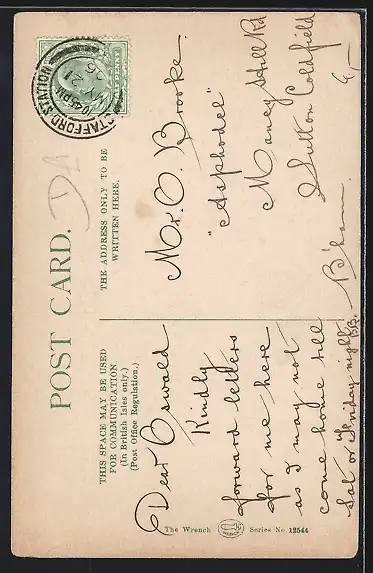 POST CARD.
THIS SPACE MAY BE USED
FOR COMMUNICATION
(In British Isles only.)
(Post Office Regulation.)
THE ADDRESS ONLY TO BE
WRITTEN HERE.
STAFFORD STATION
HALFPENNY
Dear Oswald
Kindly
forward letters
for me here
as I may not
come home till
Sat or Friday night
Mr. O. Brooke.
"Asphodel"
Maney Hill Rd
Sutton Coldfield
B'ham.
The Wrench
Series No 12544